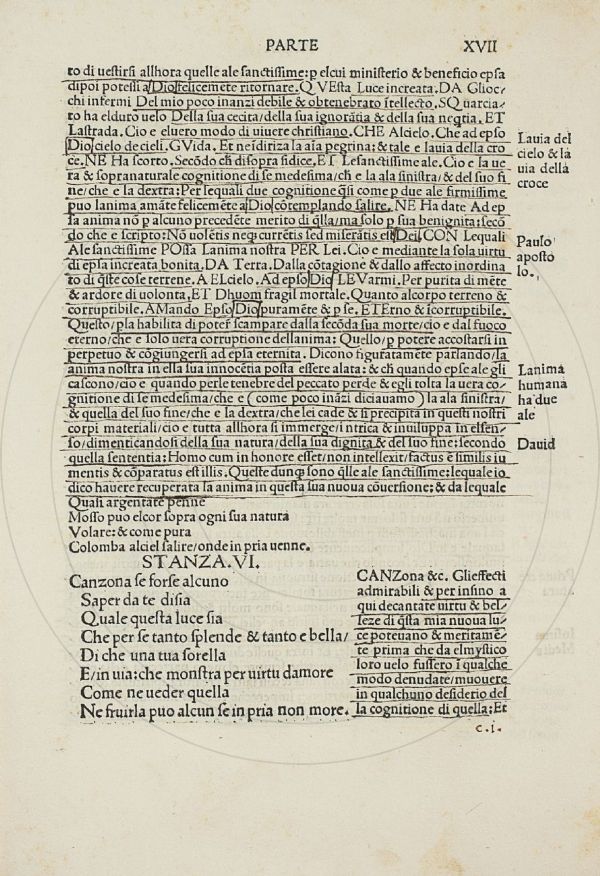 PARTE XVII
to di uestirsi allhora quelle ale sanctissime: p elcui ministerio & beneficio epsa
dipoi potessi a Dio felicemēte ritornare. Q VEsta Luce increata. DA Glioc/
chi infermi Del mio poco inanzi debile & obtenebrato ītellecto. SQ uarcia/
to ha elduro uelo Della sua cecita/della sua ignorātia & della sua neqtia. ET
Lastrada. Cio e eluero modo di uiuere christiano. CHE Alcielo. Che ad epso
Dio cielo decieli. GVida. Et neidiriza la aīa pegrina: & tale e lauia della cro
ce. NE Ha scorto. Secōdo ch disopra sidice. ET Le sanctissime ale. Cio e la ue
ra & sopranaturale cognitione di se medesima/ch e la ala sinistra/& del suo fi
ne/che e la dextra: Per lequali due cognitione q̄si come p due ale firmissime
puo lanima amāte felicemēte a Dio cōtemplando salire. NE Ha date Ad ep
sa anima nō p alcuno precedēte merito di q̄lla/ma solo p sua benignita: secō
do che e scripto: Nō uolētis neq; currētis sed miserātis est Dei. CON Lequali
Ale sanctissime POssa Lanima nostra PER Lei. Cio e mediante la sola uirtu
di epsa increata bonita. DA Terra. Dalla cōtagione & dallo affecto inordina
to di q̄ste cose terrene. A ELcielo. Ad epso Dio LEVarmi. Per purita di mēte
& ardore di uolonta. ET Dhuom fragil mortale. Quanto alcorpo terreno &
corruptibile. AMando Epso Dio puramēte & p se. ETErno & īcorruptibile.
Questo/pla habilita di poter scampare dalla secōda sua morte/cio e dal fuoco
eterno/che e solo uera corruptione dellanima: Quello/p potere accostarsi in
perpetuo & cōgiungersi ad epsa eternita. Dicono figuratamēte parlando/la
anima nostra in ella sua innocētia posta essere alata: & ch quando epse ale gli
cascono/cio e quando perle tenebre del peccato perde & egli tolta la uera co/
gnitione di se medesima/che e (come poco ināzi diciauamo) la ala sinistra/
& quella del suo fine/che e la dextra/che lei cade & si precipita in questi nostri
corpi materiali/cio e tutta allhora si immerge/intrica & inuiluppa in elsen/
so/dimenticandosi della sua natura/della sua dignita & del suo fine: secondo
quella sententia: Homo cum in honore esset/non intellexit/factus ē similis iu
mentis & cōparatus est illis. Queste dunq; sono q̄lle ale sanctissime: lequale io
dico hauere recuperata la anima in questa sua nuoua cōuersione: & da lequale
Quasi argentate penne
Mosso puo elcor sopra ogni sua natura
Volare: & come pura
Colomba alciel salire/onde in pria uenne.
Lauia del
cielo & la
uia della
croce
Paulo
aposto
lo.
Lanima
humana
ha due
ale
Dauid
STANZA. VI.
Canzona se forse alcuno
Saper da te disia
Quale questa luce sia
Che per se tanto splende & tanto e bella/
Di che una tua sorella
E/in uia: che monstra per uirtu damore
Come ne ueder quella
Ne fruirla puo alcun se in pria non more.
CANZona &c. Glieffecti
admirabili & per infino a
qui decantate uirtu & bel/
leze di q̄sta mia nuoua lu/
ce poteuano & meritamē/
te prima che da elmystico
loro uelo fussero ī qualche
modo denudate/muouere
in qualchuno desiderio del
la cognitione di quella: Et
c. i.